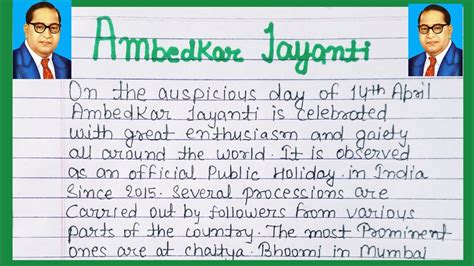 Ambedkar Jayanti
On the auspicious day of 14th April
Ambedkar Jayanti is celebrated
with great enthusiasm and gaiety
all around the world. It is observed
as an official Public Holiday in India
Since 2015. Several processions are
Carried out by followers from various
parts of the country. The most Prominent
ones are at chaitya Bhoomi in Mumbai